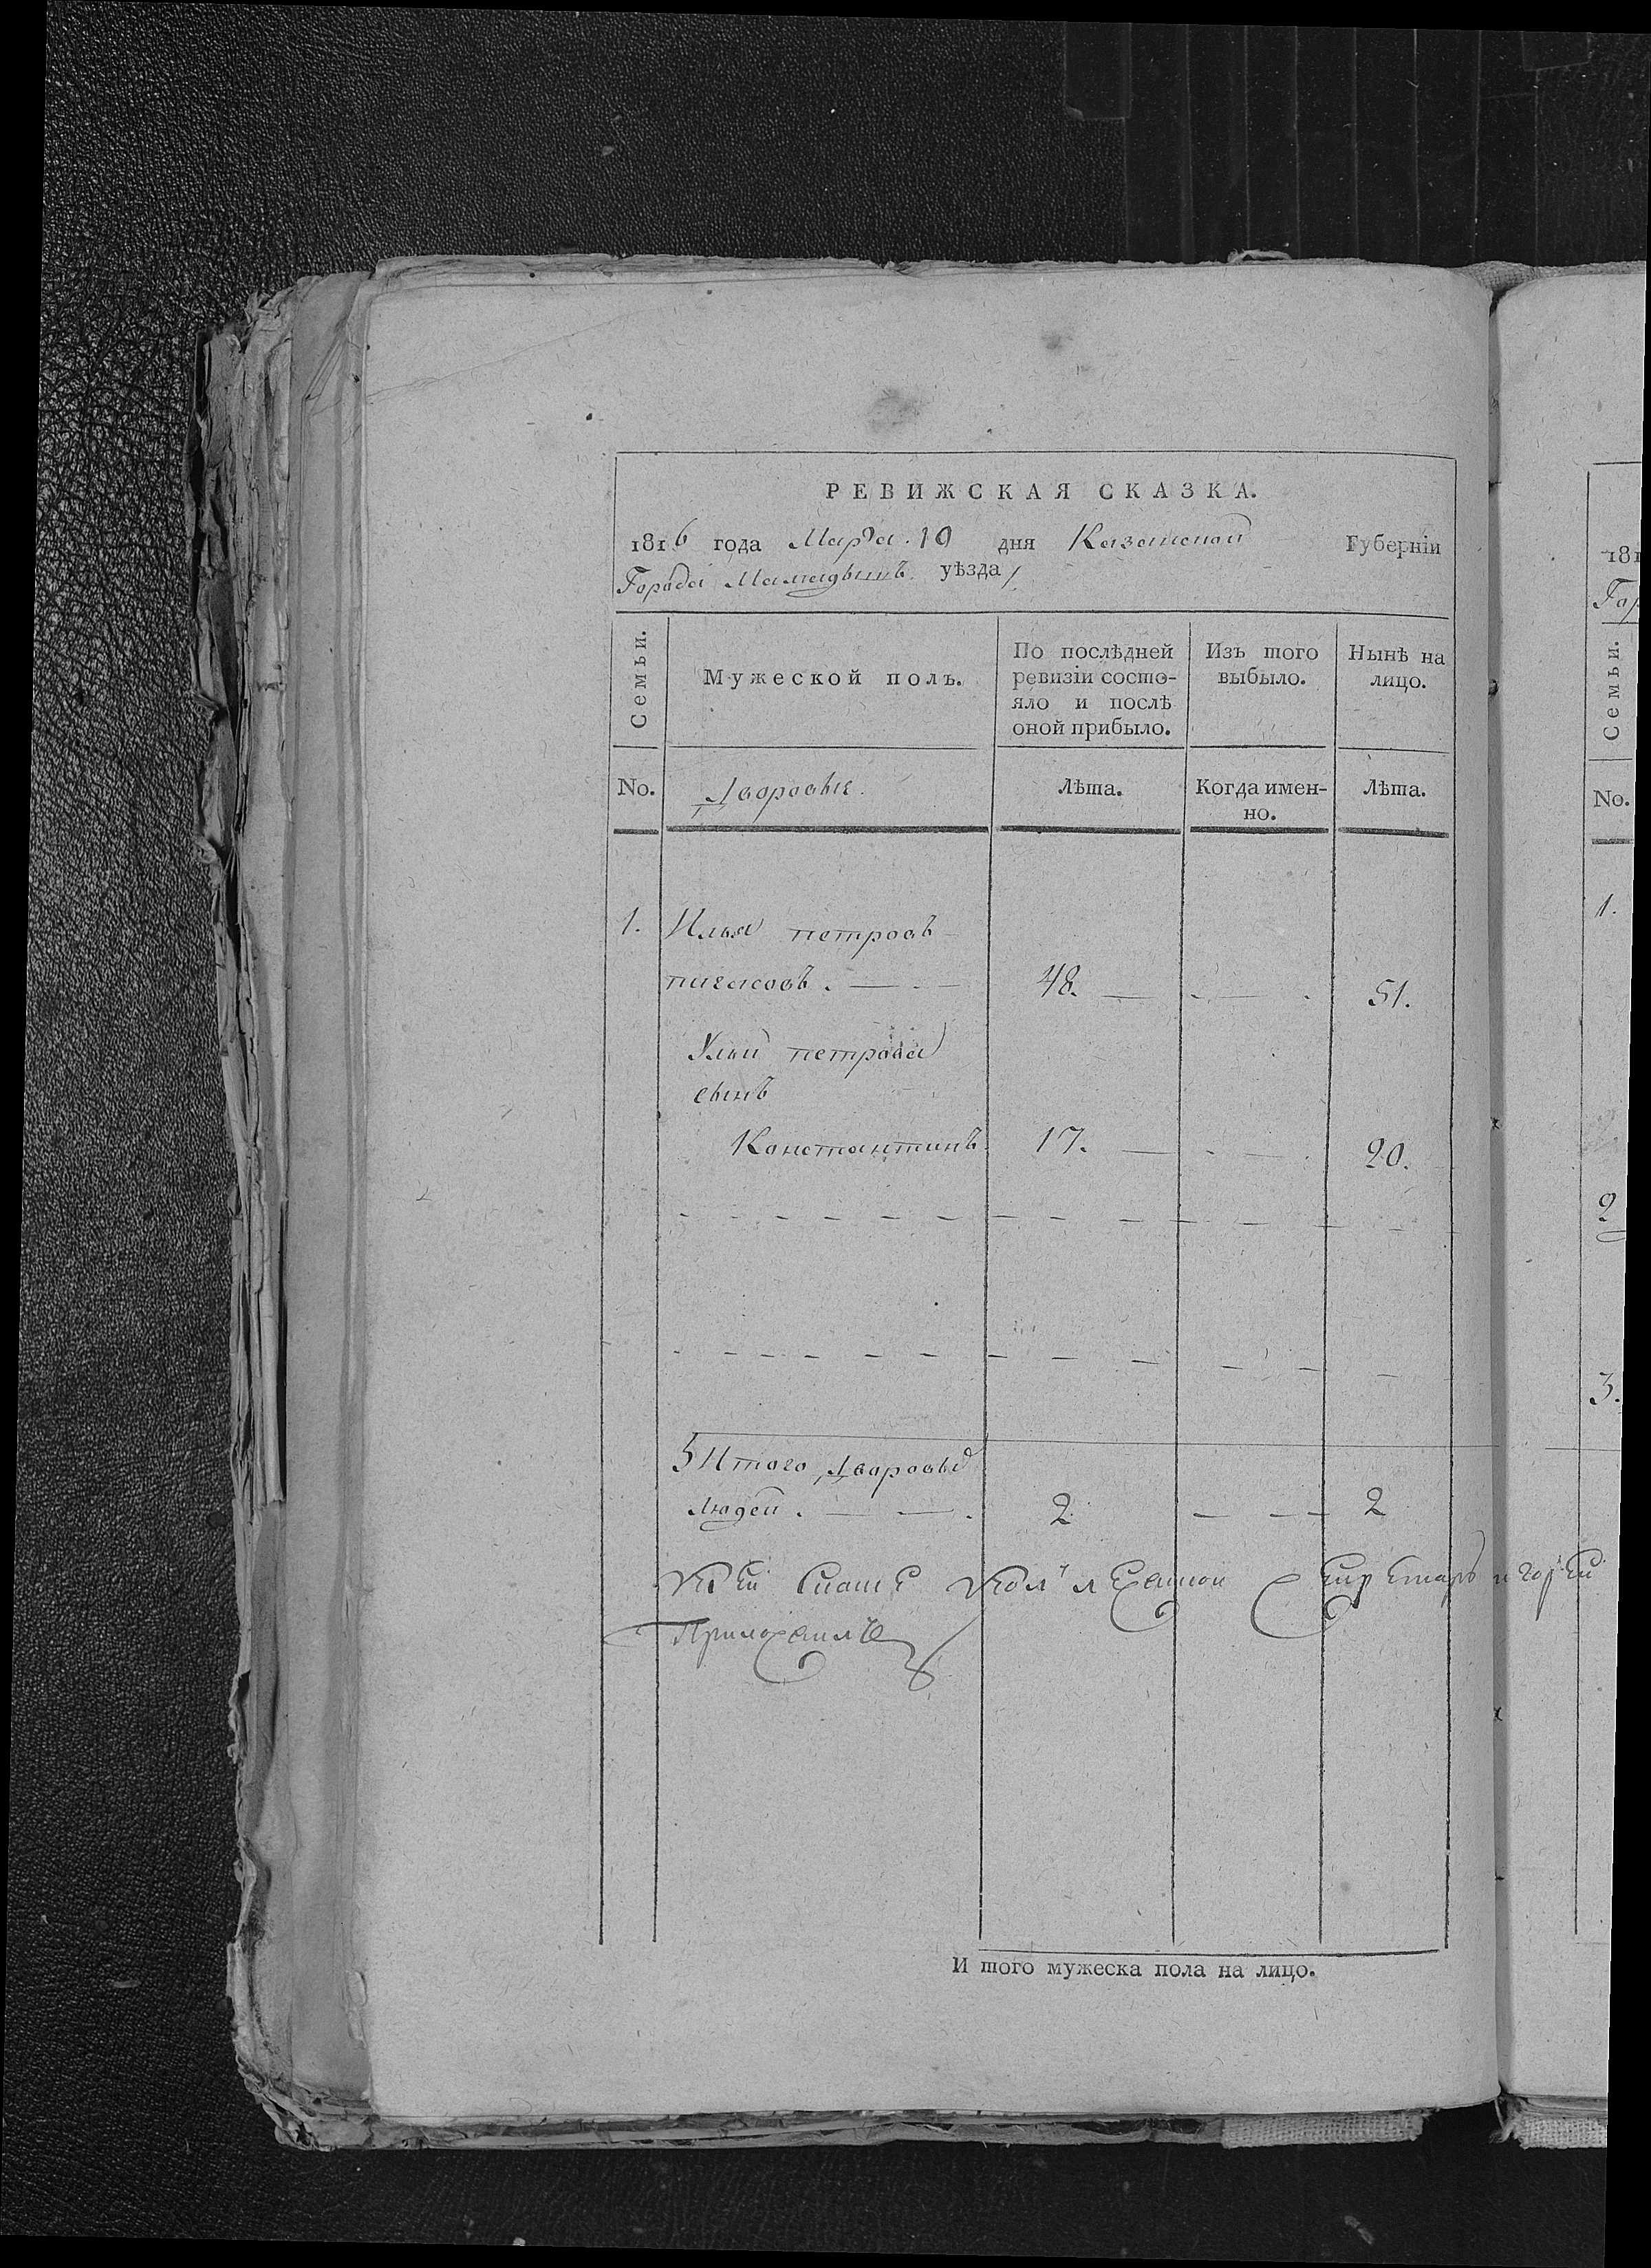 РЕВИЖСКАЯ СКАЗКА.
1816 года Марта 10 дня Казанской Губерніи
Города Мамадышъ уѣзда
Семьи.
Мужеской полъ.
По послѣдней ревизіи состо-
яло и послѣ
оной прибыло.
Изъ того
выбыло.
Нынѣ на
лицо.
No.
Дворовыя.
Лѣта.
Когда имен-
но.
Лѣта.
1. Илья петровъ
пигасовъ. 48. 51.
Ильи петрова
сынъ
Константинъ 17. 20.
Итого Дворовыхъ
людей. 2 2
К сей скаске
Приложилъ
И того мужеска пола на лицо.
181
Гор
Семьи.
No.
1.
2
3.